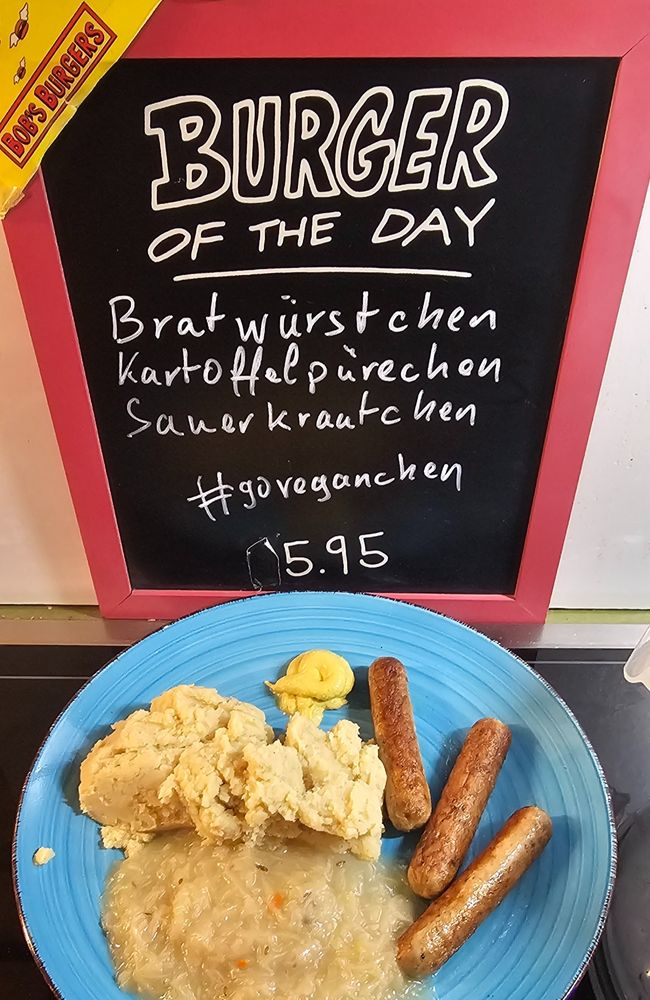 BOB'S BURGERS
BURGER
OF THE DAY
Bratwürstchen
Kartoffelpürechen
Sauerkrautchen
#goveganchen
5.95